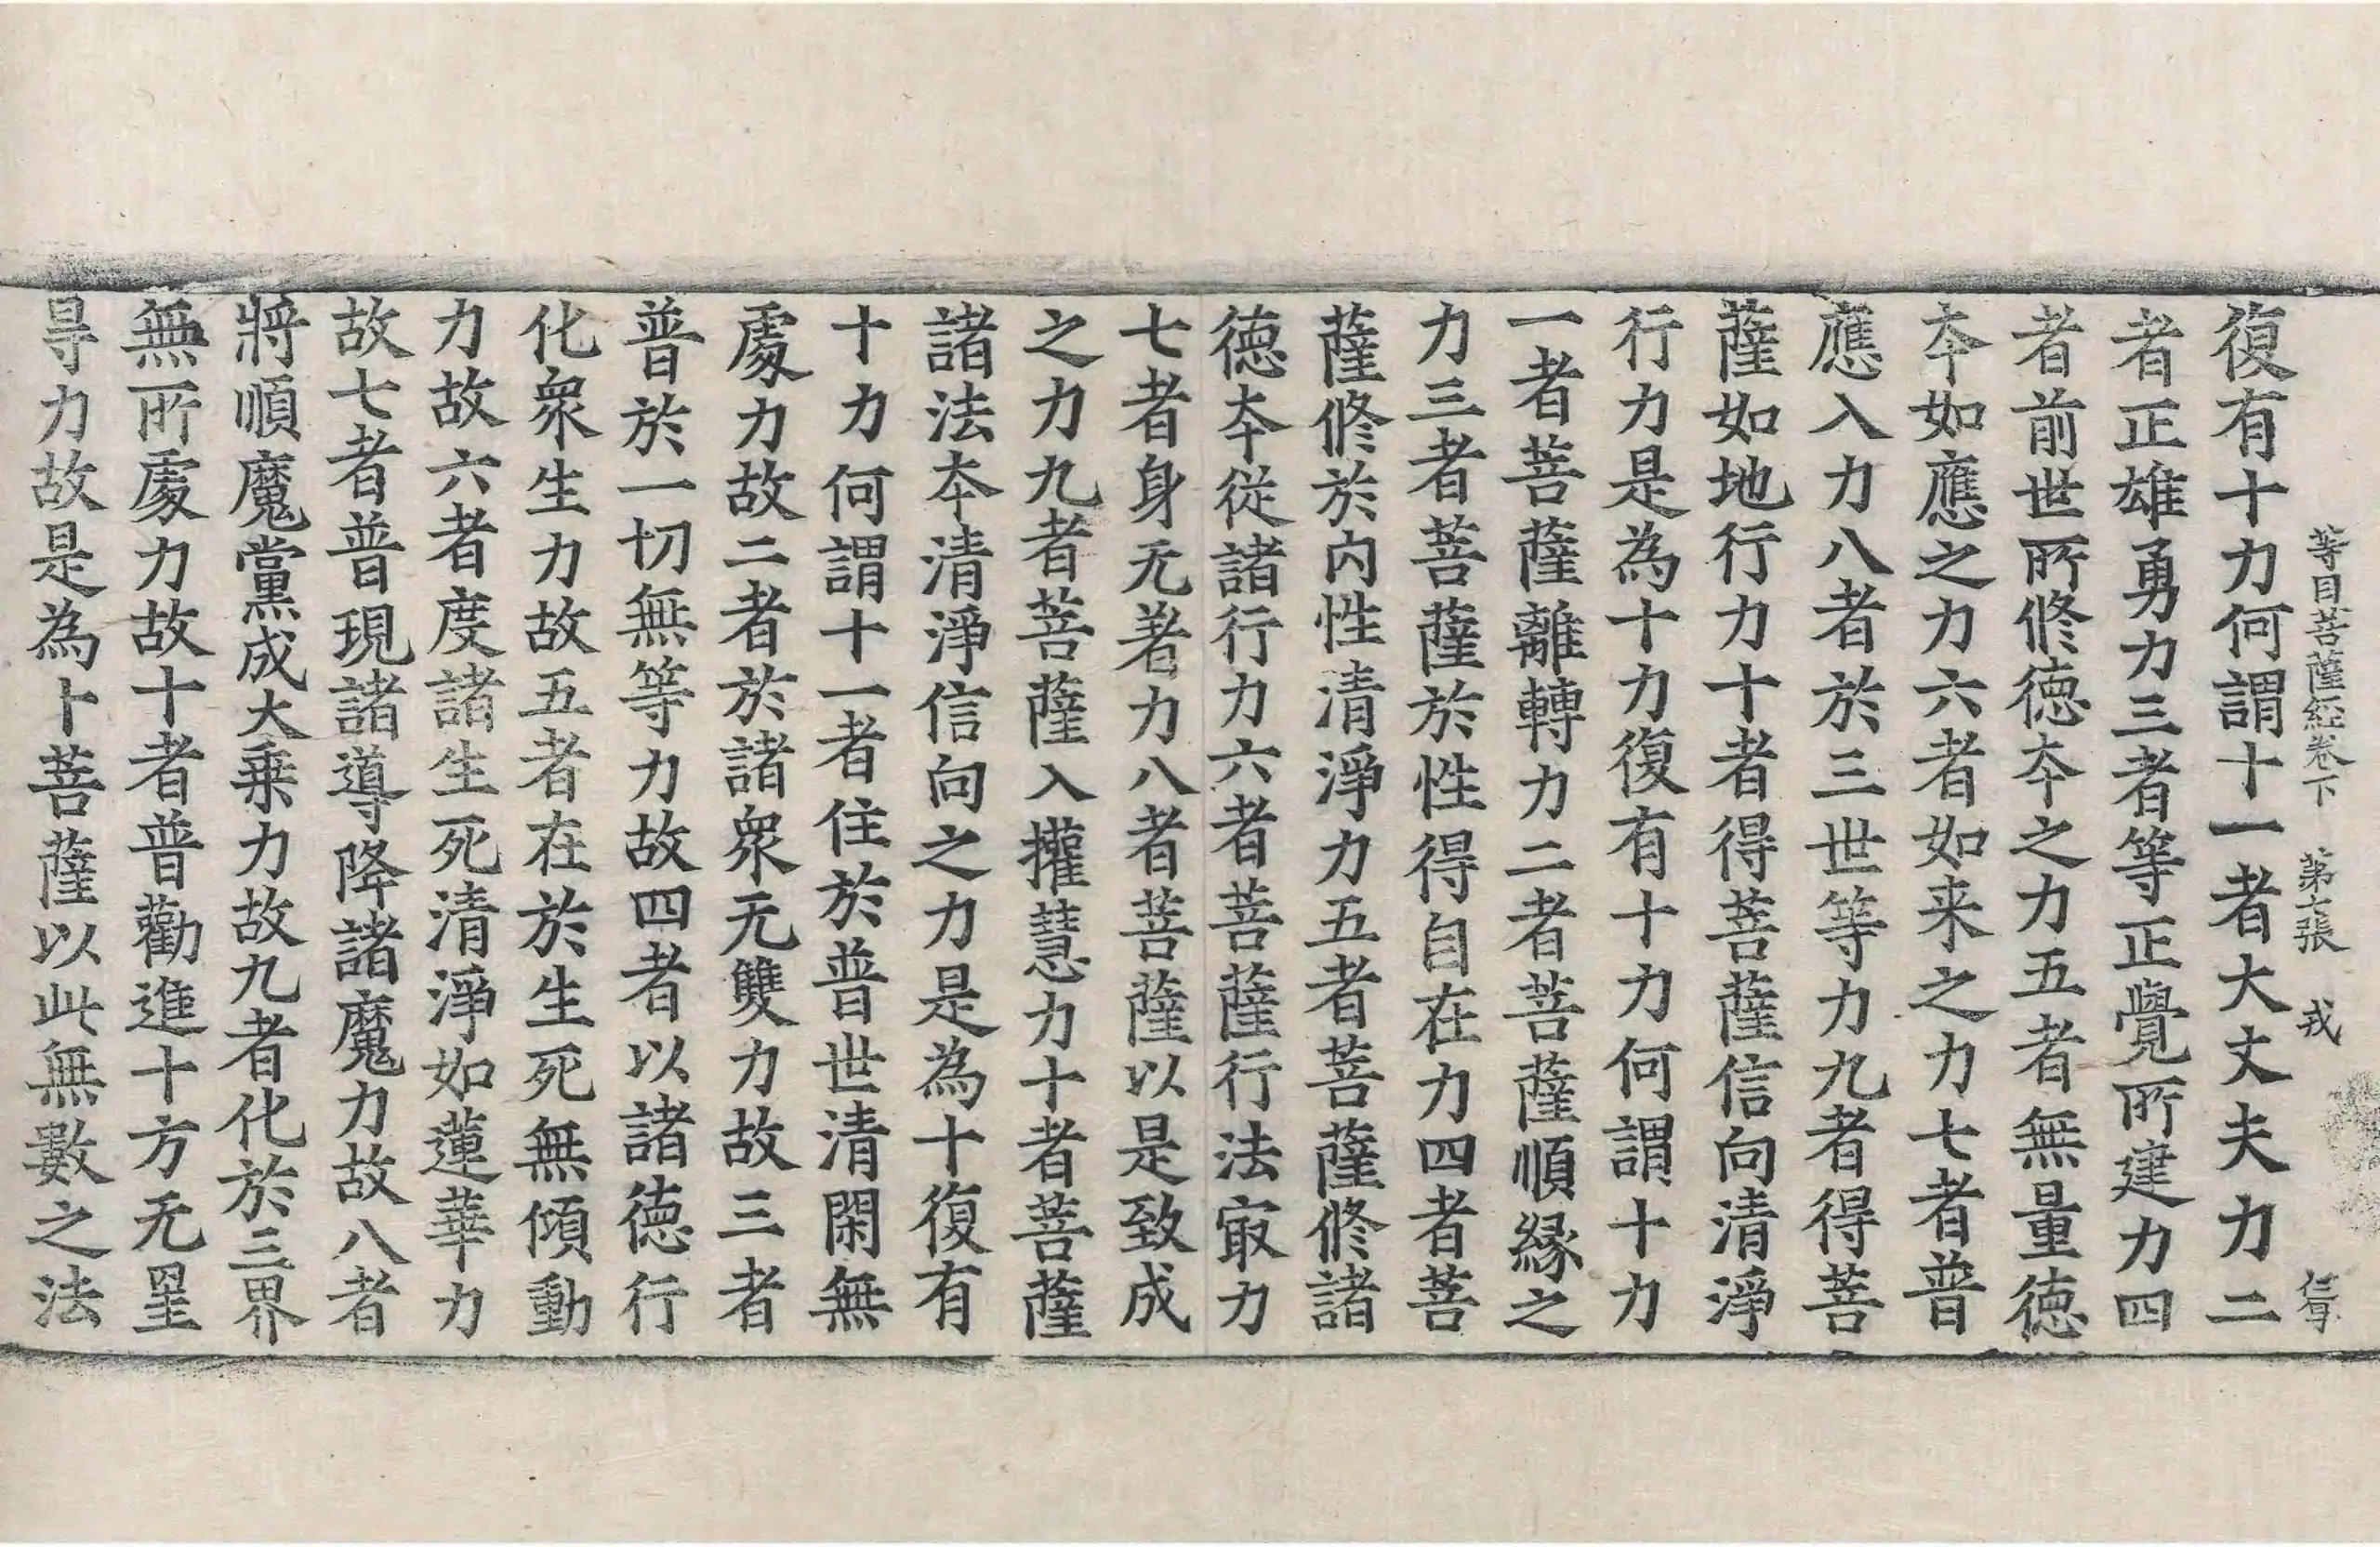 等目菩薩經卷下　第十張　戎　信耳
復有十力何謂十一者大丈夫力二
者正雄勇力三者等正覺所建力四
者前世所修德夲之力五者無量德
夲如應之力六者如来之力七者普
應入力八者於三世等力九者得菩
薩如地行力十者得菩薩信向清淨
行力是為十力復有十力何謂十力
一者菩薩離轉力二者菩薩順緣之
力三者菩薩於性得自在力四者菩
薩修於内性清淨力五者菩薩修諸
德夲從諸行力六者菩薩行法㝡力
七者身无著力八者菩薩以是致成
之力九者菩薩入攉慧力十者菩薩
諸法夲清淨信向之力是為十復有
十力何謂十一者住於普世清閑無
處力故二者於諸衆无雙力故三者
普於一切無等力故四者以諸德行
化衆生力故五者在於生死無傾動
力故六者度諸生死清淨如蓮華力
故七者普現諸導降諸魔力故八者
將順魔黨成大乗力故九者化於三界
無所處力故十者普勸進十方无罣
㝵力故是為十菩薩以此無數之法